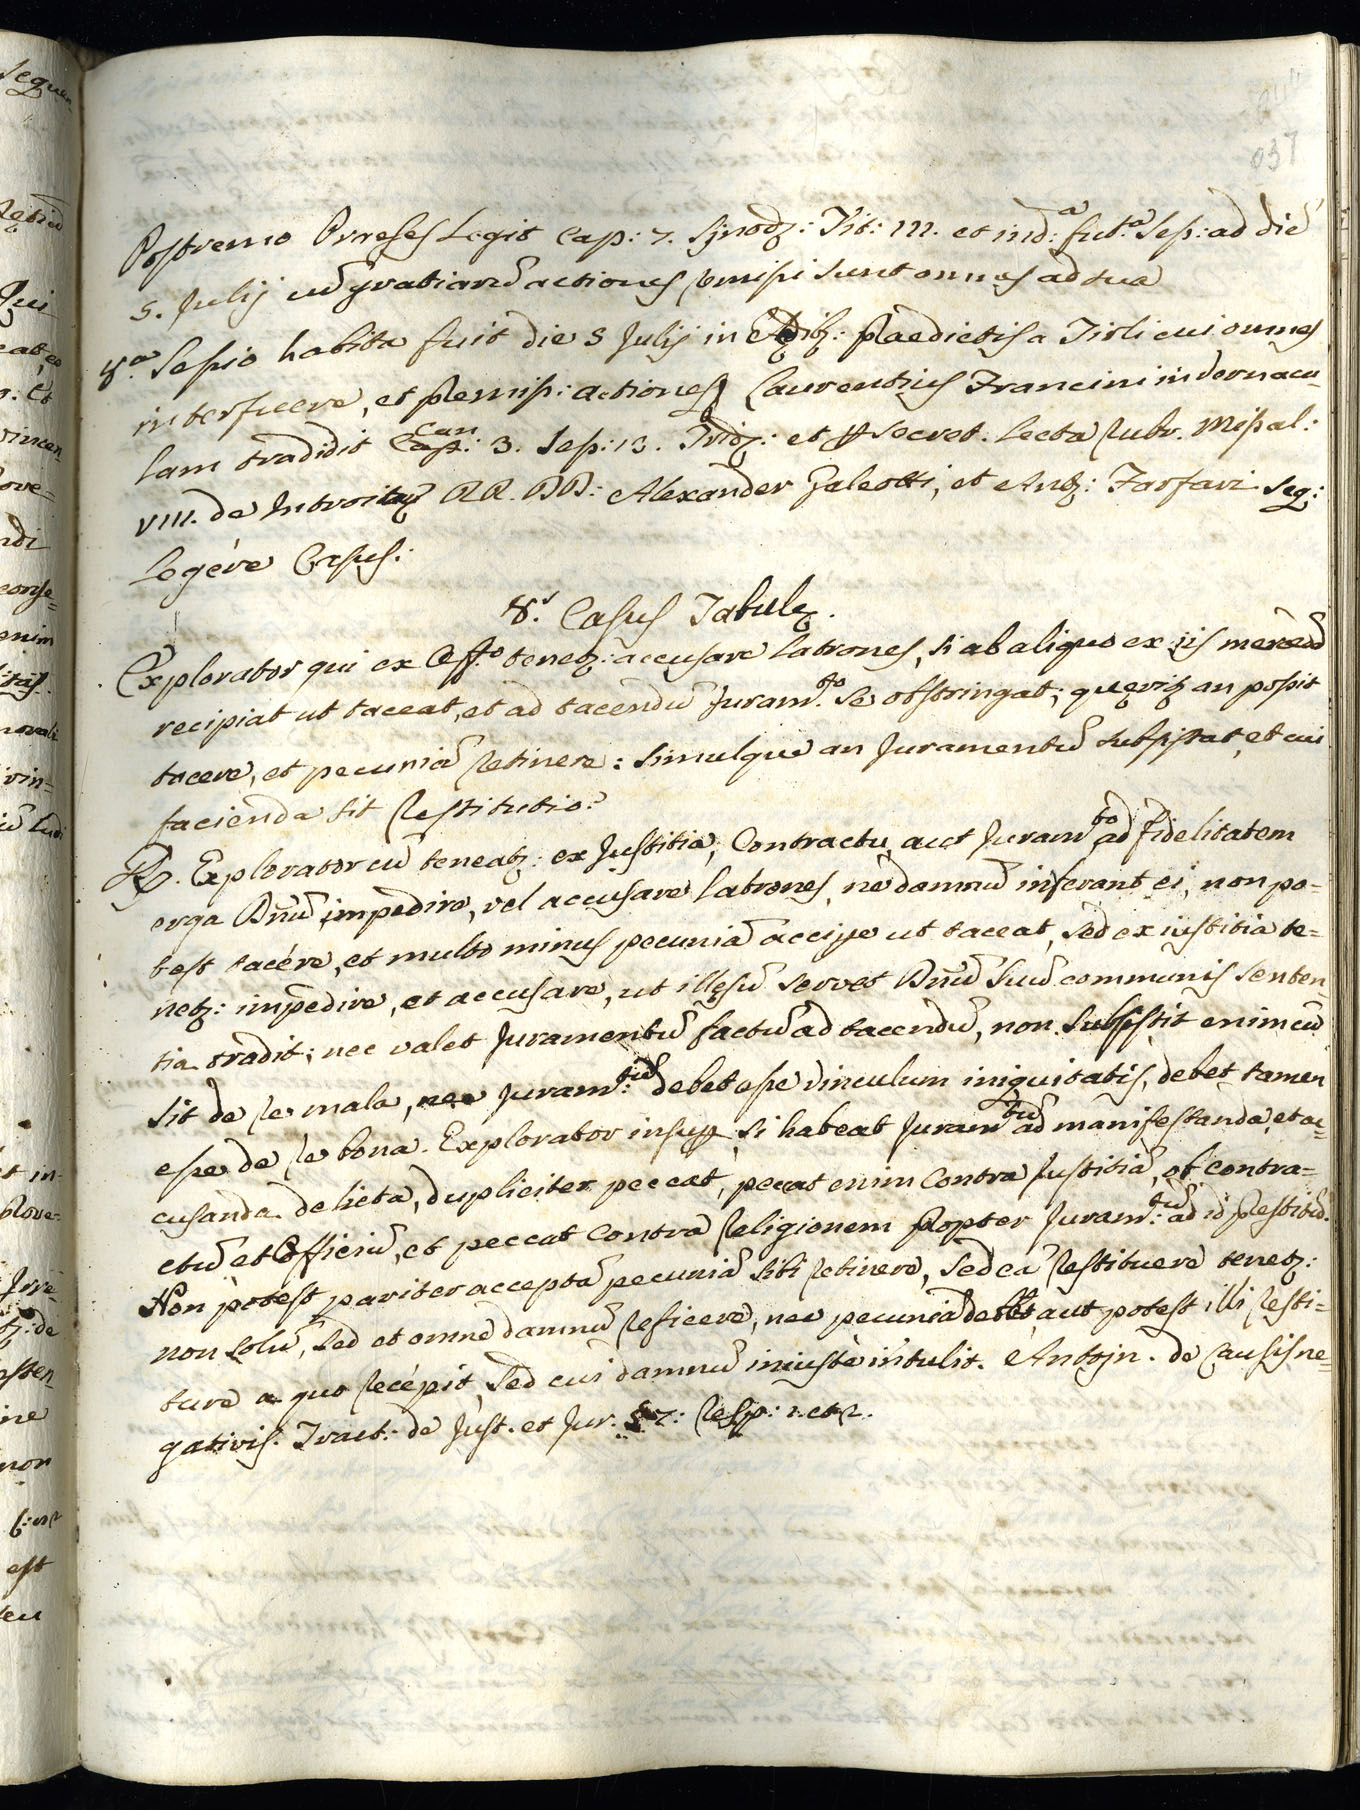 037
Postremo Preses Legit Cap: 7. Sijnodz: Tit: III. et ind:ª fut.ª Seß: ad diē
5. Julij cū gratiarū actiones missi sunt omnes ad sua
8.ª Sessio habita fuit die 5 Julij in Edib: praedictis a Tisli cui omnes
interfuere, et premiss: actiones Laurentius Francini in vernacu-
lam tradidit Can: 3. Sess: 13. Trid: et p secret. Lecta Rubr. Missal:
VIII. de Introitu RR. DD: Alexander Galeotti, et Ant: Farfari seq:
Legére Casus:
8.s Casus Tabulę.
Explorator qui ex Off.o tenetz: accusare latrones, si ab aliquo ex iis mercēd
recipiat ut taceat, et ad tacendū Juram.to se obstringat; queritz an possit
tacere, et pecuniā retinere: simulque an Juramentū subsistat, et cui
facienda sit restitutio?
R. Explorator cū teneatz: ex Justitia, Contractu, aut Juramto ad fidelitatem
erga Dnū impedire, vel accusare latrones, ne damnū inferant ei, non po-
test tacére, et multo minus pecuniā accipe ut taceat, sed ex iustitia te-
netz: impedire, et accusare, ut illęsū servet Dnū suū communis senten-
tia tradit; nec valet Juramentū factū ad tacendū, non subsistit enim cū
sit de re mala, nec Juram:tū debet esse vinculum iniquitatis, debet tamen
esse de re bona. Explorator insup, si habeat Juramtū ad manifestanda, et ac-
cusanda delicta, dupliciter peccat, peccat enim Contra Justitiā, ob contra-
ctū et Officiū, et peccat contra religionem propter Juram:tū ad id prestitū.
Non potest pariter acceptā pecuniā sibi retinere, sed eā restituere tenetz:
non solū, sed et omne damnū reficere, nec pecuniā debet aut potest illi resti-
tuere a quo recépit, sed cui damnū iniustè intulit. Antojn. de Causis ne-
gativis. Tract: de Just. et Jur. § 7: Resp: 1. et 2.